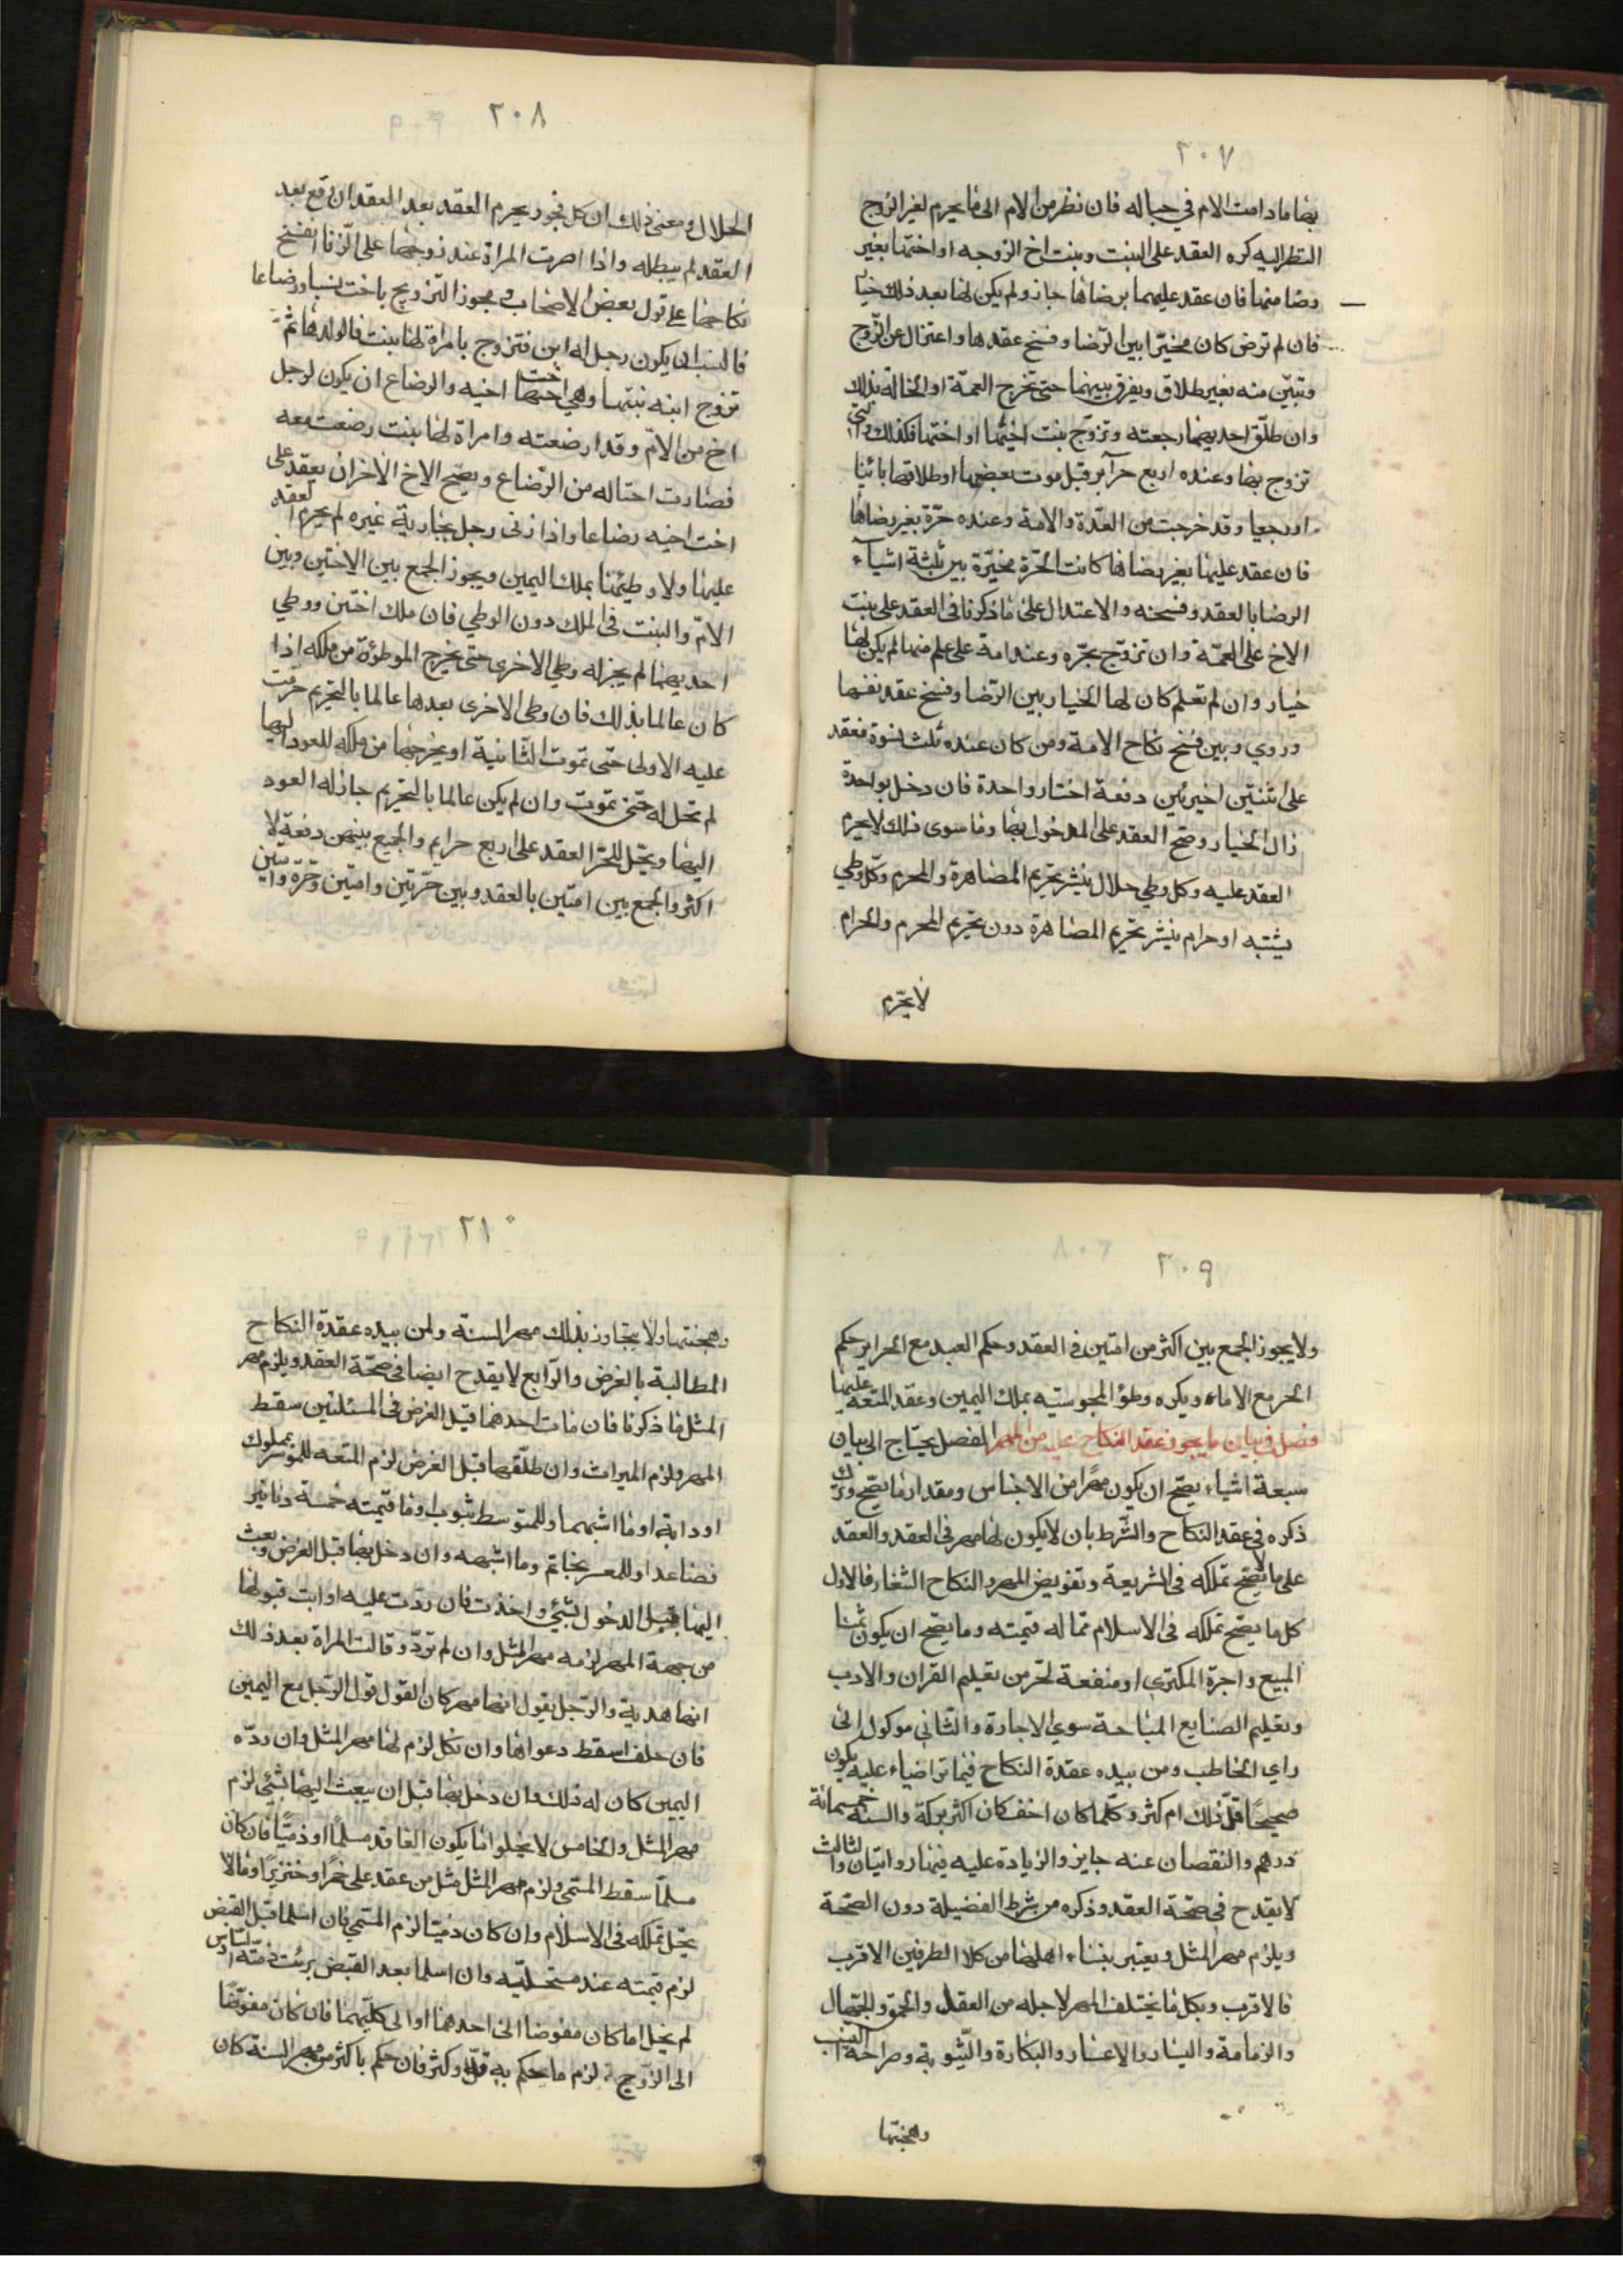 ٢٠٧
بها مادامت الام في حباله فان نظر من الام الى ما يحرم لغير الزوج
النظر اليه كره العقد على البنت وبنت اخ الزوجه او اختها بغير
رضا منها فان عقد عليهما برضاها جاز ولم يكن لها بعد ذلك خيا
فان لم ترض كان مخيرا بين الرضا وفسخ عقدها واعتزال عن الزوج
وتبين منه بغير طلاق ويفرق بينهما حتى تخرج العمة او الخالة بذلك
وان طلق احديهما رجعته وتزوج بنت اخيها او اختها فكذلك والتي
تزوج بها وعنده اربع حرآير قبل موت بعضهما او طلاقها بائنا
او رجعيا وقد خرجت من العدة والامة وعنده حرة بغير رضاها
فان عقد عليها بغير رضاها كانت الحرة مخيرة بين ثلثة اشيآء
الرضا بالعقد وفسخه والاعتدال على ما ذكرنا فى العقد على بنت
الاخ على العمة وان تزوج بحره وعنده امة على علم منها لم يكن لها
خيار وان لم تعلم كان لها الخيار بين الرضا وفسخ عقد نفسها
وروي وبين فسخ نكاح الامة ومن كان عنده ثلث نسوة فعقد
على اثنتين اخيرتين دفعة اختار واحدة فان دخل بواحدة
زال الخيار وصح العقد على المدخول بها وما سوى ذلك لا يحرم
العقد عليه وكل وطي حلال ينشر تحريم المصاهرة والمحرم وكل وطي
يشتبه او حرام ينشر تحريم المصاهرة دون تحريم المحرم والحرام
لا يحرم
٢٠٨
الحلال ومعنى ذلك ان كل فجور يحرم العقد بعد العقد ان وقع بعد
العقد لم يبطله واذا اصرت المراة عند زوجها على الزنا انفسخ
نكاحها على قول بعض الاصحاب ويجوز التزويج باخت نسبا ورضاعا
فالنسب ان يكون رجل له ابن فتزوج بامراة لها بنت فالولدها ثم
تزوج ابنه بنتها وهي اخت اخيه والرضاع ان يكون لرجل
اخ من الام وقد ارضعته وامراة لها بنت رضعت معه
فصارت اختا له من الرضاع ويصح الاخ الاخر ان يعقد على
اخت اخيه رضاعا واذا زنى رجل بجارية غيره لم يحرم العقد
عليها ولا وطيها بملك اليمين ويجوز الجمع بين الاختين وبين
الام والبنت فى الملك دون الوطي فان ملك اختين ووطي
احديهما لم يجز له وطي الاخرى حتى يخرج الموطؤة من ملكه اذا
كان عالما بذلك فان وطى الاخرى بعدها عالما بالتحريم حرمت
عليه الاولى حتى تموت الثانية او يخرجها من ملكه للعود اليها
لم تحل له حتى تموت وان لم يكن عالما بالتحريم جاز له العود
اليها ويحل للحر العقد على اربع حراير والجمع بينهن دفعة لا
اكثر والجمع بين امتين بالعقد وبين حرتين وامتين وحرة وامتين
٢٠٩
ولا يجوز الجمع بين اكثر من امتين فى العقد وحكم العبد مع الحراير حكم
الحر مع الاماء ويكره وطؤ المجوسيه بملك اليمين وعقد المتعه عليها
فصل في بيان ما يجوز عقد النكاح عليه من المهر المفصل يحتاج الى بيان
سبعة اشياء يصح ان يكون مهرا من الاجناس ومقدار ما يصح وترك
ذكره فى عقد النكاح والشرط بان لا يكون لها مهر فى العقد والعقد
على ما لا يصح تملكه فى الشريعة وتفويض المهر والنكاح الشغار فالاول
كل ما يصح تملكه فى الاسلام مما له قيمته وما يصح ان يكون ثمنا
المبيع واجرة المكترى او منفعة لحر من تعليم القران والادب
وتعليم الصنايع المباحة سوي الاجارة والثانى موكول الى
راي الخاطب ومن بيده عقدة النكاح فيما تراضياء عليه يكون
صحيحا قل ذلك ام كثر وكلما كان اخف كان اكثر بركة والسنة خمسمائة
درهم والنقصان عنه جايز والزيادة عليه فيها روايتان والثالث
لا يقدح فى صحة العقد وذكره من شرط الفضيلة دون الصحة
ويلزم مهر المثل ويعتبر بنساء اهلها من كلا الطرفين الاقرب
فالاقرب وبكل ما يختلف المهر لاجله من العقل والحمق والجمال
والزمامة واليسار والاعسار والبكارة والثيوبة وصراحة النسب
وهجنتها
٢١٠
وهجنتها ولا يتجاوز بذلك مهر السنة ولمن بيده عقدة النكاح
المطالبة بالفرض والرابع لا يقدح ايضا فى صحة العقد ويلزم مهر
المثل ما ذكرنا فان مات احدهما قبل الفرض فى المسئلتين سقط
المهر ولزم الميراث وان طلقها قبل الفرض لزم المتعه للموسر بمملوك
او دابة او ما اشبهما وللمتوسط بثوب او ما قيمته خمسة دنانير
فصاعدا وللمعسر بخاتم وما اشبهه وان دخل بها قبل الفرض وبعث
اليها قبل الدخول بشئ واخذت فان ردت عليه او ابت قبولها
من جهة المهر لزمه مهر المثل وان لم ترد وقالت المراة بعد ذلك
انها هدية والرجل يقول انها مهر كان القول قول الرجل مع اليمين
فان حلف اسقط دعواها وان نكل لزم لها مهر المثل وان رده
اليمين كان له ذلك وان دخل بها قبل ان يبعث اليها بشئ لزم
مهر المثل والخامس لا يخلوا اما يكون العاقد مسلما او ذميا فان كان
مسلما سقط المسمى ولزم مهر المثل مثل من عقد على خمرا وخنزيرا ومالا
يحل تملكه فى الاسلام وان كان ذميا لزم المسمى فان اسلما قبل القبض
لزم قيمته عند مستحليه وان اسلما بعد القبض برئت ذمته السادس
لم يخل اما كان مفوضا الى احدهما او الى كليهما فان كان مفوضا
الى الزوج لزم ما يحكم به قل وكثر فان حكم باكثر من مهر السنة كان